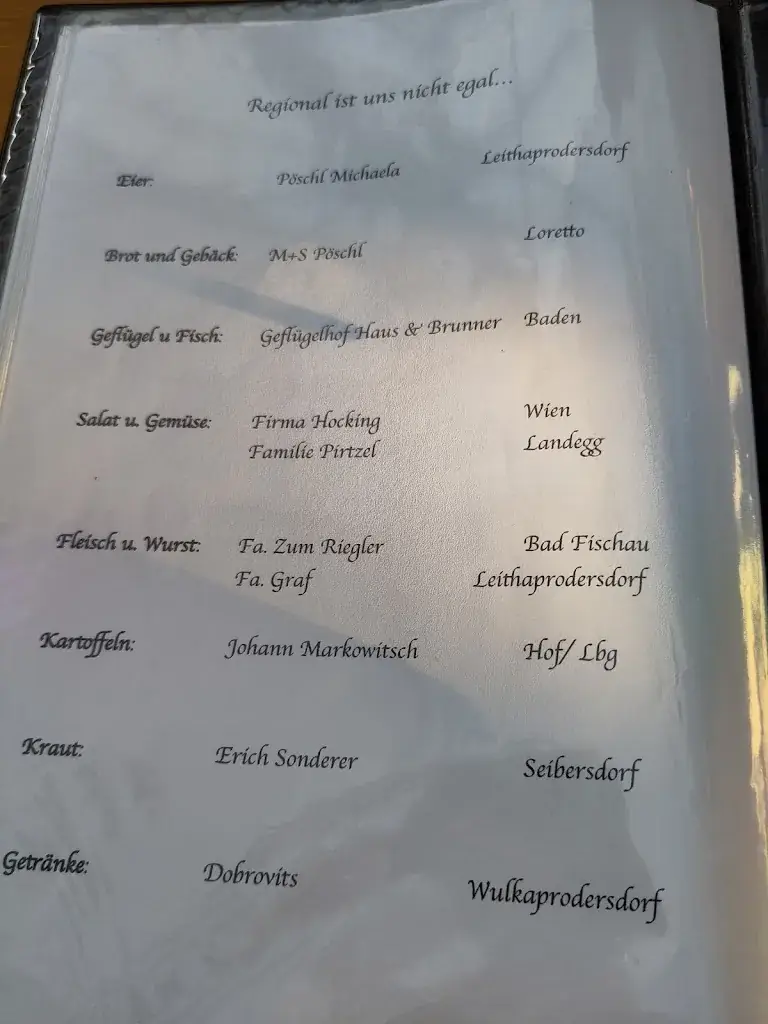 Regional ist uns nicht egal...
Eier: Pöschl Michaela Leithaprodersdorf
Brot und Gebäck: M+S Pöschl Loretto
Geflügel u Fisch: Geflügelhof Haus & Brunner Baden
Salat u. Gemüse: Firma Hocking Wien
Familie Pirtzel Landegg
Fleisch u. Wurst: Fa. Zum Riegler Bad Fischau
Fa. Graf Leithaprodersdorf
Kartoffeln: Johann Markowitsch Hof/ Lbg
Kraut: Erich Sonderer Seibersdorf
Getränke: Dobrovits Wulkaprodersdorf